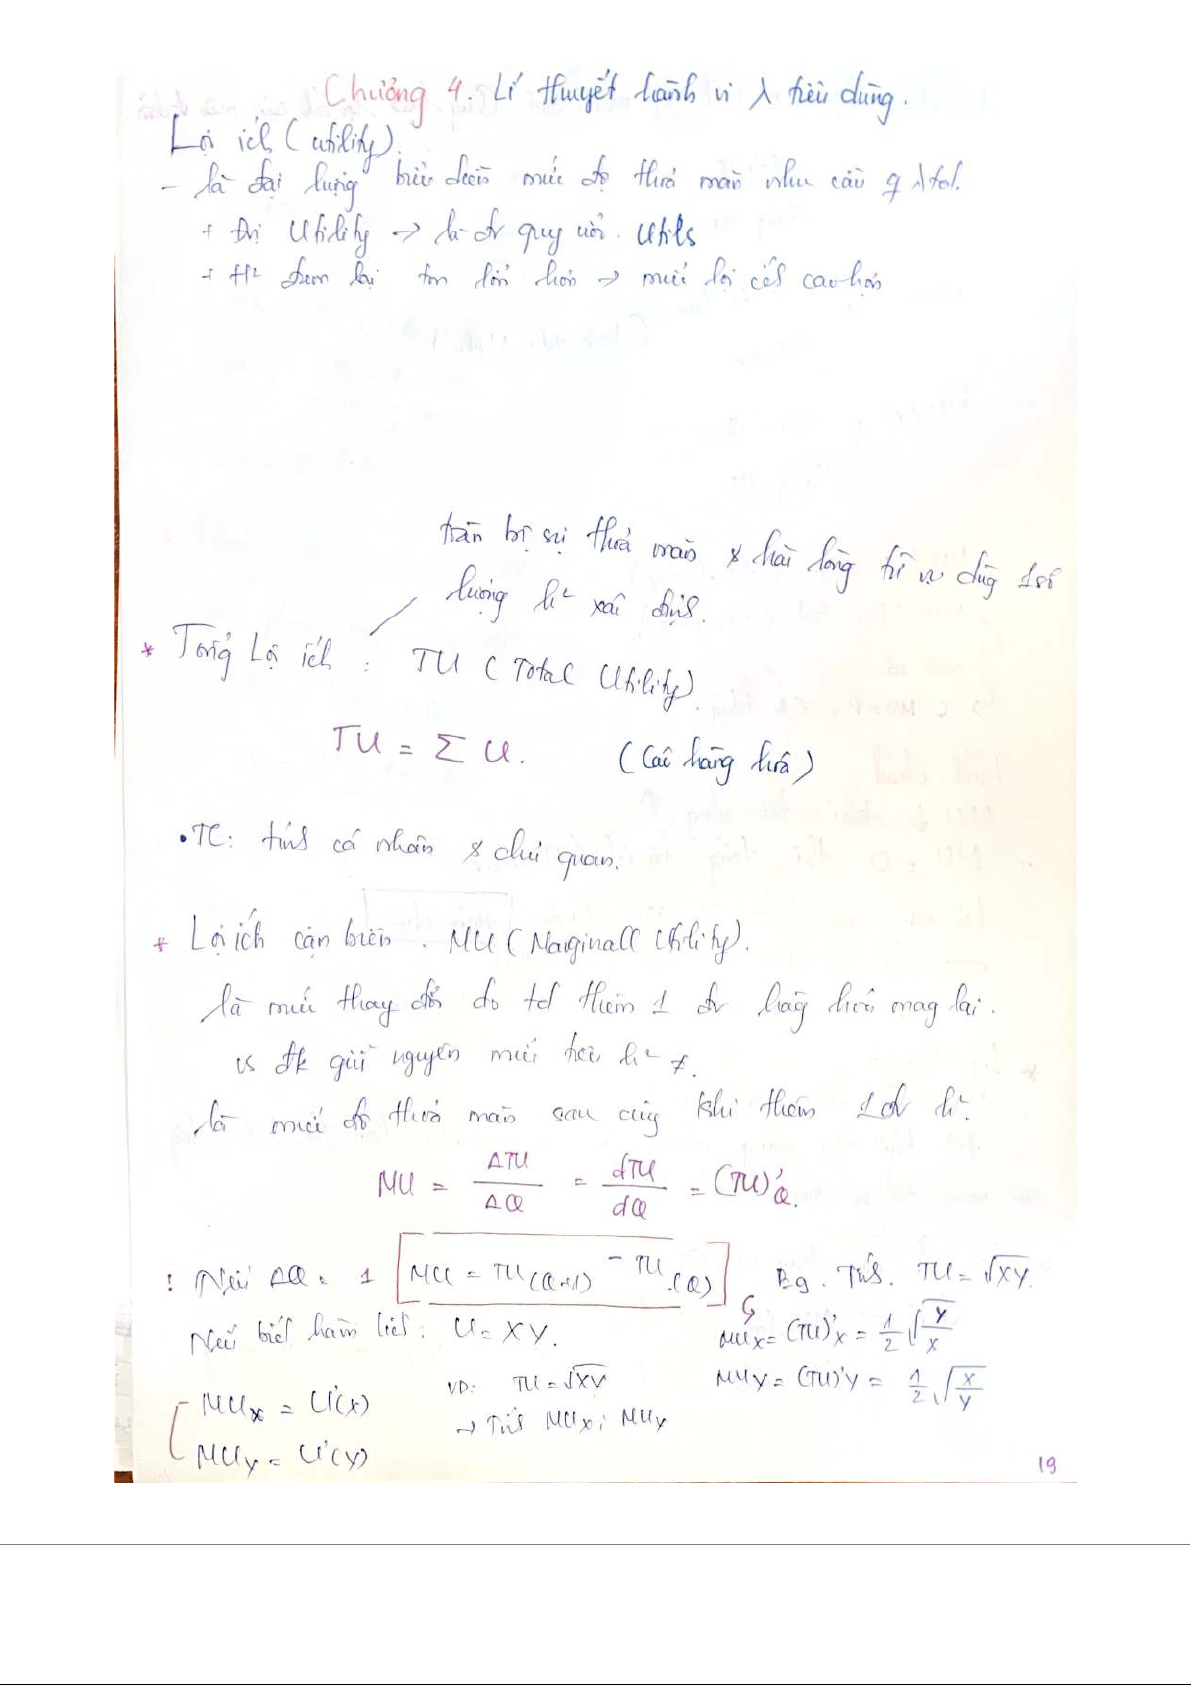 Chương 4. Lí thuyết hành vi λ tiêu dùng.
Lợi ích (utility).
- là đại lượng biểu diễn mức độ thoả mãn nhu cầu of λ td.
+ Đvị Utility → là đv quy ước. Utils
+ H² đem lại tm lớn hơn → mức lợi ích cao hơn
toàn bộ sự thoả mãn & hài lòng từ vc dùng 1 số
lượng h² xác định.
* Tổng Lợi ích : TU ( Total Utility).
TU = Σ U. (Các hàng hoá)
• TC: tính cá nhân & chủ quan.
* Lợi ích cận biên . MU ( Marginall Utility).
là mức thay đổi do td thêm 1 đv hàng hoá mang lại.
vs đk giữ nguyên mức tiêu h² ≠.
là mức độ thoả mãn sau cùng khi thêm 1 đv h².
MU = ΔTU/ΔQ = dTU/dQ = (TU)'Q.
! Nếu ΔQ = 1 [MU = TU(Q+1) - TU(Q)] Eg. Tính. TU = √XY.
Nếu biết hàm lích: U = XY. MUx = (TU)'x = 1/2 √Y/X
VD: TU = √XY MUY = (TU)'Y = 1/2 √X/Y
MUx = U'(x) → Tính MUx; MUY
MUY = U'(Y)
19